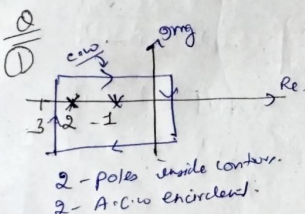 Q
①
c.w.
Img
Re.
-3 -2 -1
2 - poles inside contour.
2 - A.C.W encirclement.